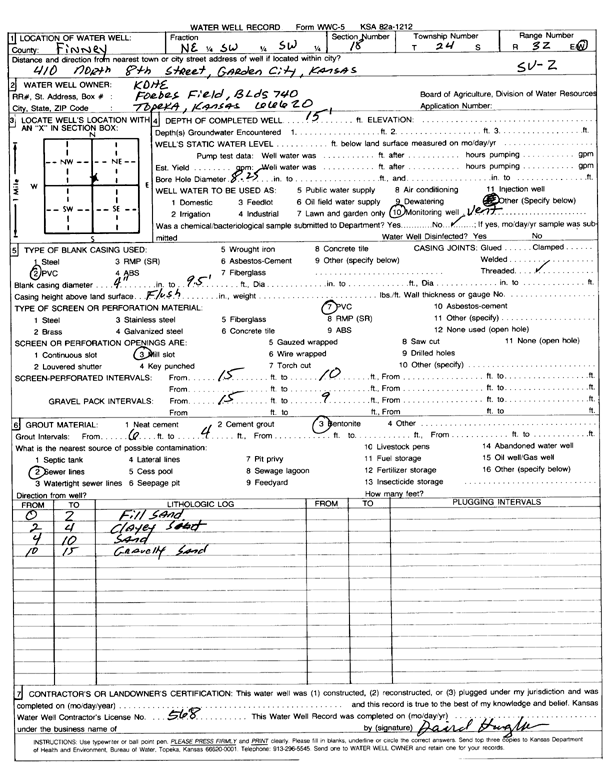 WATER WELL RECORD Form WWC-5 KSA 82a-1212
1 LOCATION OF WATER WELL: Fraction Section Number Township Number Range Number
County: Finney NE ¼ SW ¼ SW ¼ 18 T 24 S R 32 E/W
Distance and direction from nearest town or city street address of well if located within city?
410 North 8th Street, Garden City, Kansas SV-2
2 WATER WELL OWNER: KDHE
RR#, St. Address, Box # : Forbes Field, BLDS 740 Board of Agriculture, Division of Water Resources
City, State, ZIP Code : Topeka, Kansas 66620 Application Number:
3 LOCATE WELL'S LOCATION WITH AN "X" IN SECTION BOX:
N
NW NE
W E
SW SE
S
1 Mile
4 DEPTH OF COMPLETED WELL 15 ft. ELEVATION:
Depth(s) Groundwater Encountered 1. ft. 2. ft. 3. ft.
WELL'S STATIC WATER LEVEL ft. below land surface measured on mo/day/yr
Pump test data: Well water was ft. after hours pumping gpm
Est. Yield gpm: Well water was ft. after hours pumping gpm
Bore Hole Diameter 8.25 in. to ft., and in. to ft.
WELL WATER TO BE USED AS: 5 Public water supply 8 Air conditioning 11 Injection well
1 Domestic 3 Feedlot 6 Oil field water supply 9 Dewatering Other (Specify below)
2 Irrigation 4 Industrial 7 Lawn and garden only 10 Monitoring well Vent
Was a chemical/bacteriological sample submitted to Department? Yes No ✓; If yes, mo/day/yr sample was submitted Water Well Disinfected? Yes No
5 TYPE OF BLANK CASING USED: 5 Wrought iron 8 Concrete tile CASING JOINTS: Glued Clamped
1 Steel 3 RMP (SR) 6 Asbestos-Cement 9 Other (specify below) Welded
2 PVC 4 ABS 7 Fiberglass Threaded ✓
Blank casing diameter 4" in. to 9.5' ft., Dia in. to ft., Dia in. to ft.
Casing height above land surface Flush in., weight lbs./ft. Wall thickness or gauge No.
TYPE OF SCREEN OR PERFORATION MATERIAL: 7 PVC 10 Asbestos-cement
1 Steel 3 Stainless steel 5 Fiberglass 8 RMP (SR) 11 Other (specify)
2 Brass 4 Galvanized steel 6 Concrete tile 9 ABS 12 None used (open hole)
SCREEN OR PERFORATION OPENINGS ARE: 5 Gauzed wrapped 8 Saw cut 11 None (open hole)
1 Continuous slot 3 Mill slot 6 Wire wrapped 9 Drilled holes
2 Louvered shutter 4 Key punched 7 Torch cut 10 Other (specify)
SCREEN-PERFORATED INTERVALS: From 15 ft. to 10 ft., From ft. to ft.
From ft. to ft., From ft. to ft.
GRAVEL PACK INTERVALS: From 15 ft. to 9 ft., From ft. to ft.
From ft. to ft., From ft. to ft.
6 GROUT MATERIAL: 1 Neat cement 2 Cement grout 3 Bentonite 4 Other
Grout Intervals: From 6 ft. to 4 ft., From ft. to ft., From ft. to ft.
What is the nearest source of possible contamination: 10 Livestock pens 14 Abandoned water well
1 Septic tank 4 Lateral lines 7 Pit privy 11 Fuel storage 15 Oil well/Gas well
2 Sewer lines 5 Cess pool 8 Sewage lagoon 12 Fertilizer storage 16 Other (specify below)
3 Watertight sewer lines 6 Seepage pit 9 Feedyard 13 Insecticide storage
Direction from well? How many feet?
FROM TO LITHOLOGIC LOG FROM TO PLUGGING INTERVALS
0 2 Fill Sand
2 4 Clayey
4 10 Sand
10 15 Gravelly Sand
7 CONTRACTOR'S OR LANDOWNER'S CERTIFICATION: This water well was (1) constructed, (2) reconstructed, or (3) plugged under my jurisdiction and was
completed on (mo/day/year) and this record is true to the best of my knowledge and belief. Kansas
Water Well Contractor's License No. 568 This Water Well Record was completed on (mo/day/yr)
under the business name of by (signature)
INSTRUCTIONS: Use typewriter or ball point pen. PLEASE PRESS FIRMLY and PRINT clearly. Please fill in blanks, underline or circle the correct answers. Send top three copies to Kansas Department
of Health and Environment, Bureau of Water, Topeka, Kansas 66620-0001. Telephone: 913-296-5545. Send one to WATER WELL OWNER and retain one for your records.